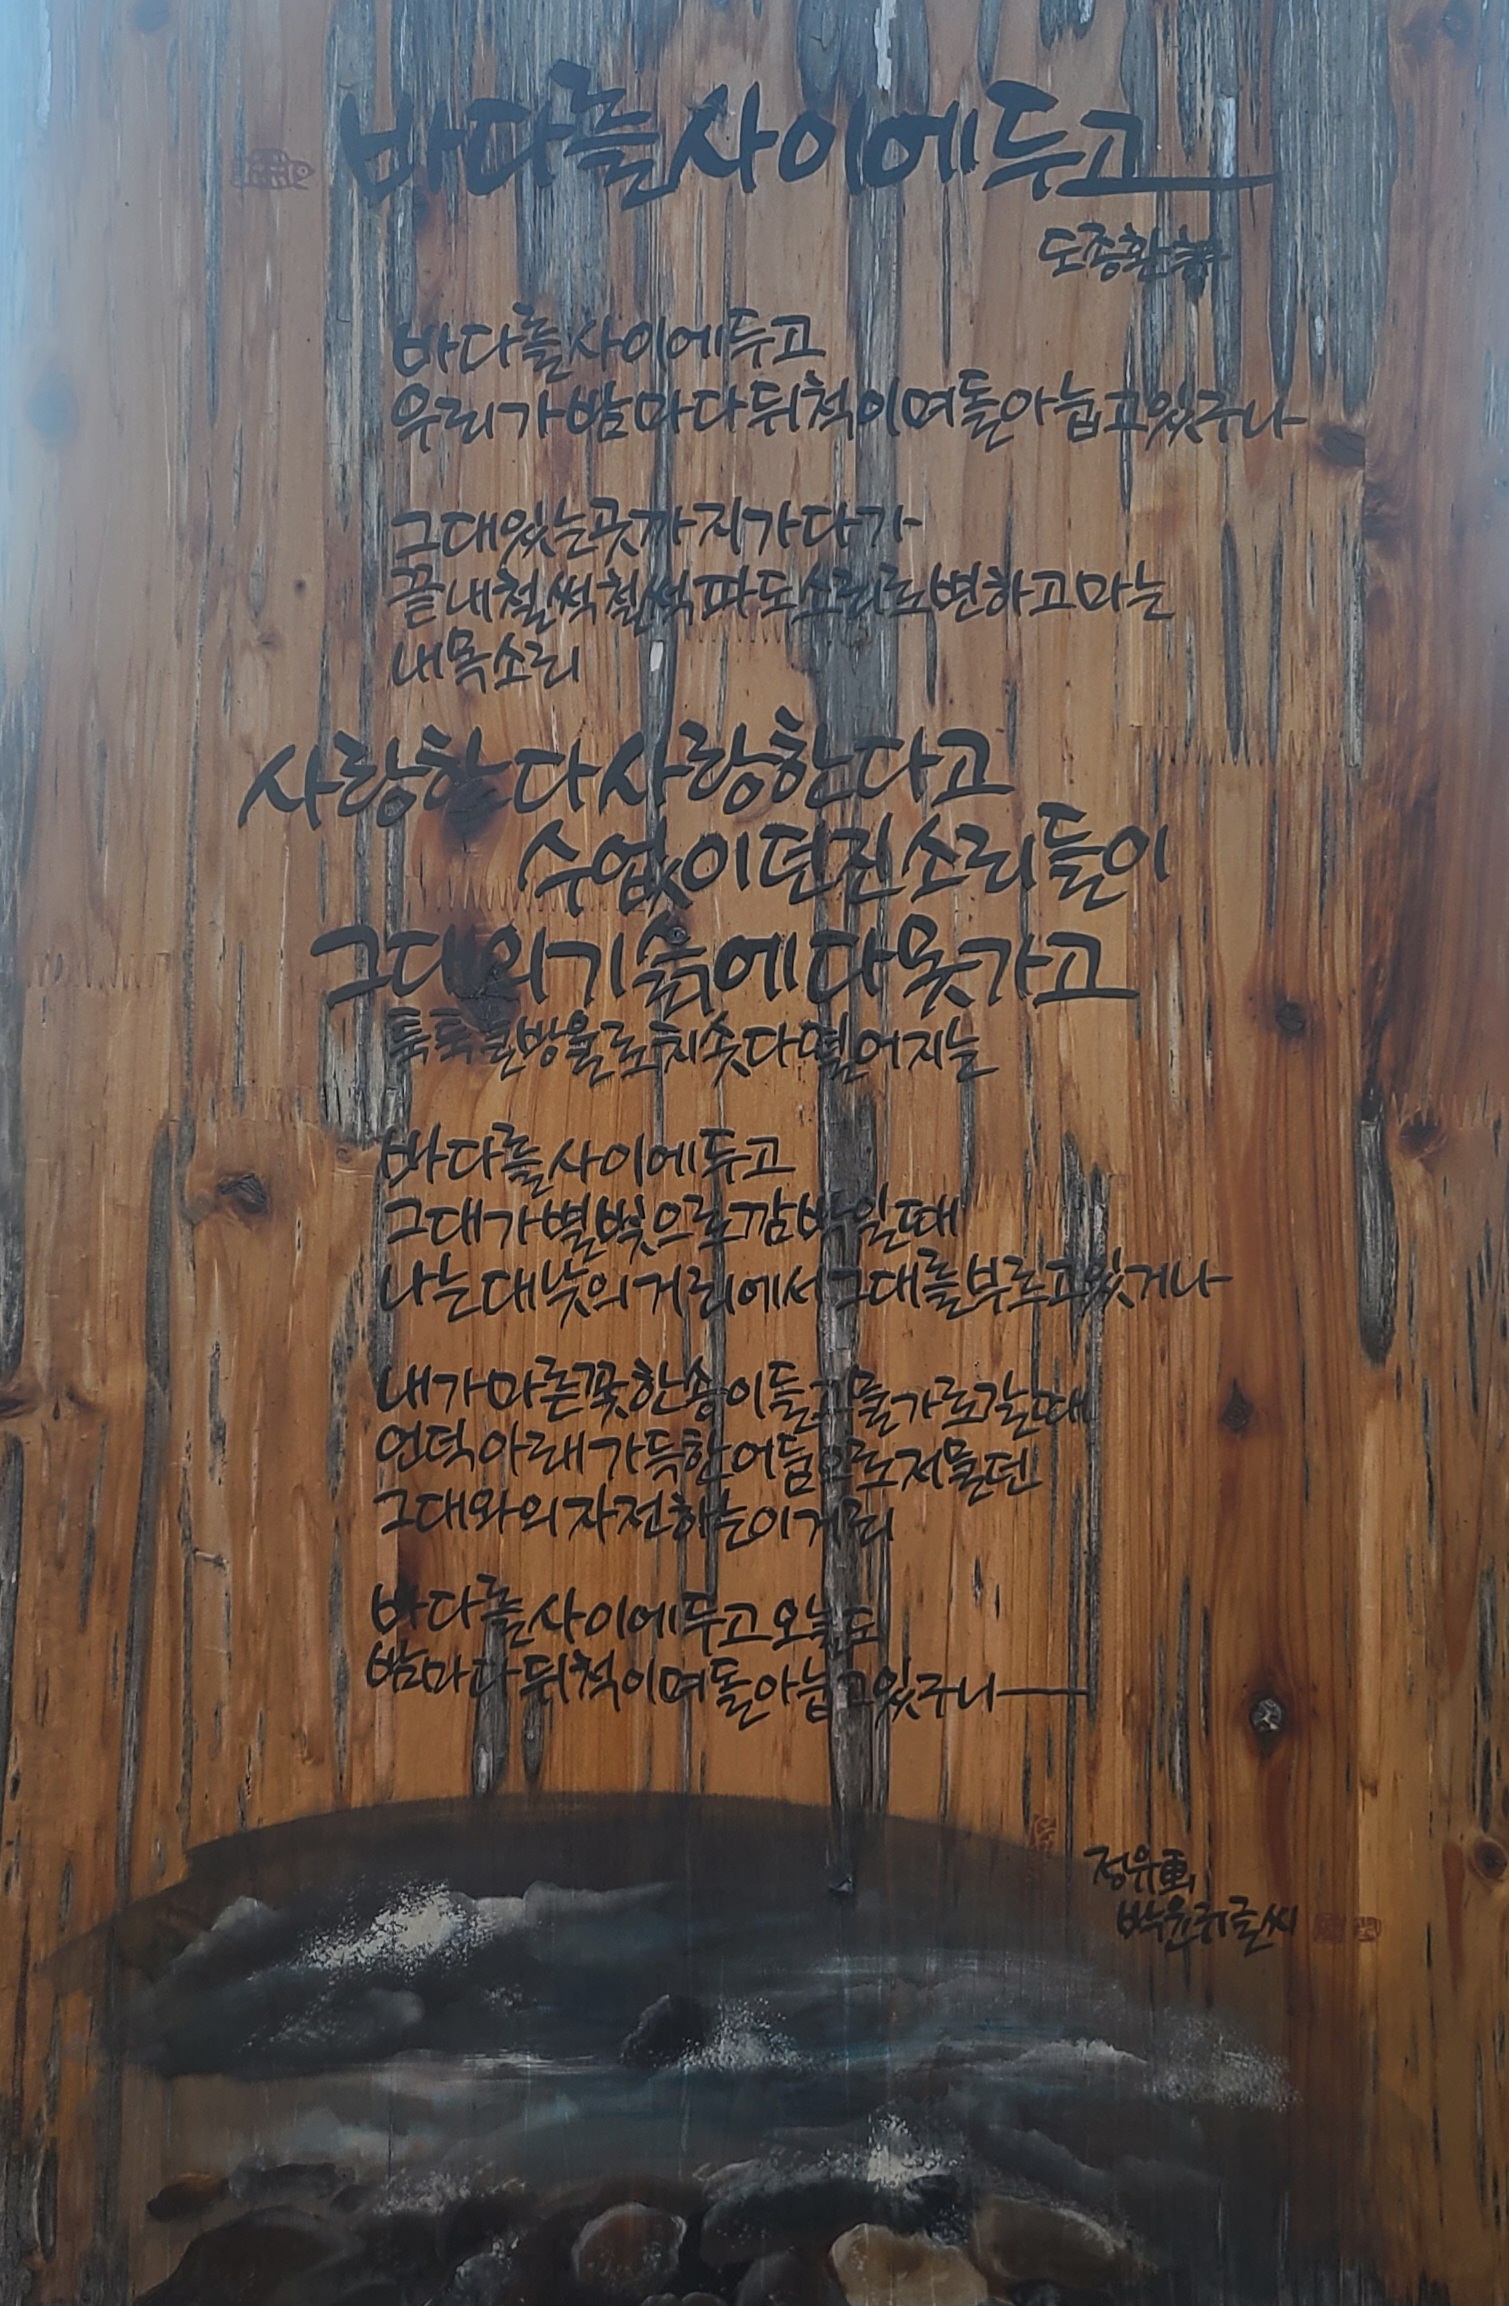 바다를 사이에 두고
도종환
바다를 사이에 두고
우리가 밤마다 뒤척이며 돌아눕고 있구나
그대 있는 곳까지 가다가
끝내 철썩철썩 파도 소리로 변하고 마는
내 목소리
사랑한다 사랑한다고
수없이 던진 소리들이
그대의 기슭에 다 못 가고
툭툭 물방울로 치솟다 떨어지는
바다를 사이에 두고
그대가 별빛으로 깜박일 때
나는 대낮의 거리에서 그대를 부르고 있거나
내가 마른 꽃 한 송이 들고 물가로 갈 때
언덕 아래 가득한 어둠으로 저물던
그대와의 자전하는 이 거리
바다를 사이에 두고 오늘도
밤마다 뒤척이며 돌아눕고 있구나
정유 畵,
박윤규 글씨